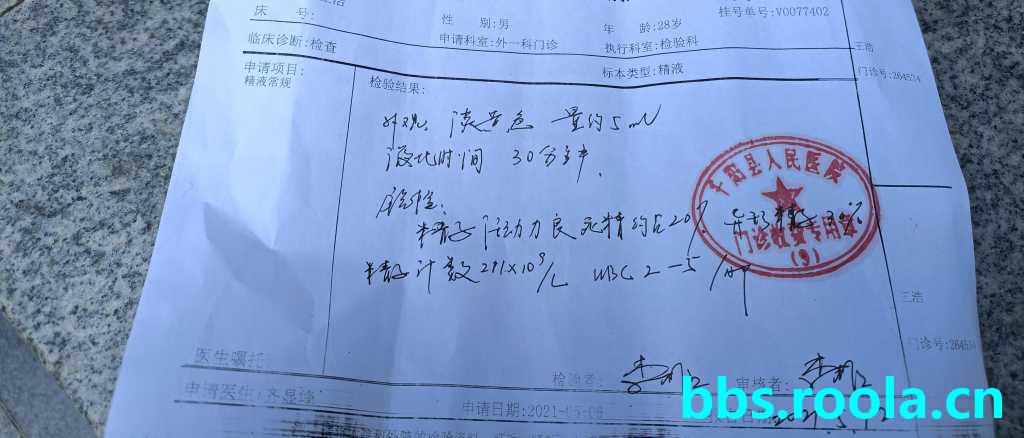 床 号:
性 别:男
年 龄:28岁
挂号单号:V0077402
临床诊断:检查
申请科室:外一科门诊
执行科室:检验科
王浩
门诊号:264534
申请项目:
精液常规
检验结果:
标本类型:精液
外观: 淡黄色 量约5ml
液化时间 30分钟
镜检:
精子活动力良 死精约占20%
精子计数291×10⁹/L WBC 2-5
人民医院
王浩
门诊号:264534
医生嘱托:
检验者:
审核者:
申请医生:齐显绿
申请日期:2021-05-08
bbs.roola.cn